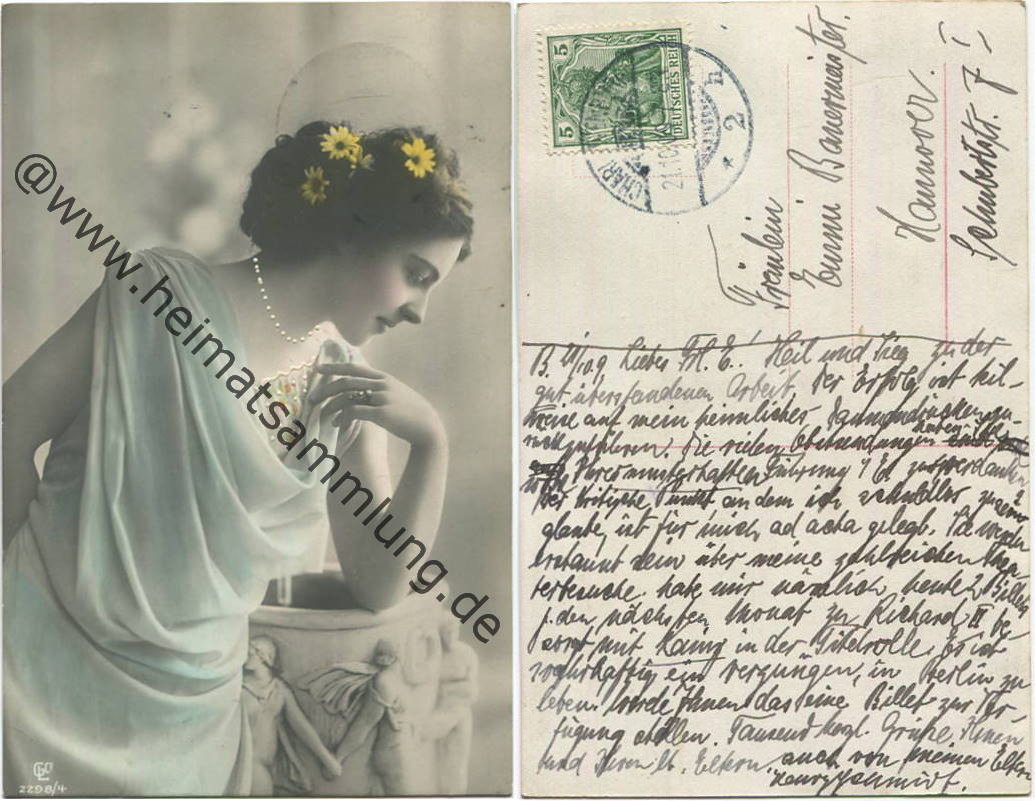 @www.heimatsammlung.de
2298/4
5
5
DEUTSCHES REICH
Fräulein
Emmi Bauermeister.
Hannover.
Schubertstr. 7 I
B. 21/10 09 Liebes Frl. E.! Heil und Sieg zu der
gut überstandenen Arbeit. Der Erfolg ist teil-
weise auf mein heimliches Daumendrücken zu-
rückzuführen. Die vielen
vernunftgehaltenen Führung
Der kritische Punkt an dem ich schuldlos zu sein
glaubte, ist für mich ad acta gelegt. Sie werden
erstaunt sein über meine zahlreichen Thea-
terbesuche. habe mir nämlich heute 2 Billets
f. den nächsten Monat zu Richard II be-
sorgt mit Kainz in der Titelrolle. Es ist
wahrhaftig ein Vergnügen, in Berlin zu
leben. Werde Ihnen das eine Billet zur Ver-
fügung stellen. Tausend herzl. Grüße, Ihnen
und Ihren lb. Eltern auch von meinen Eltern